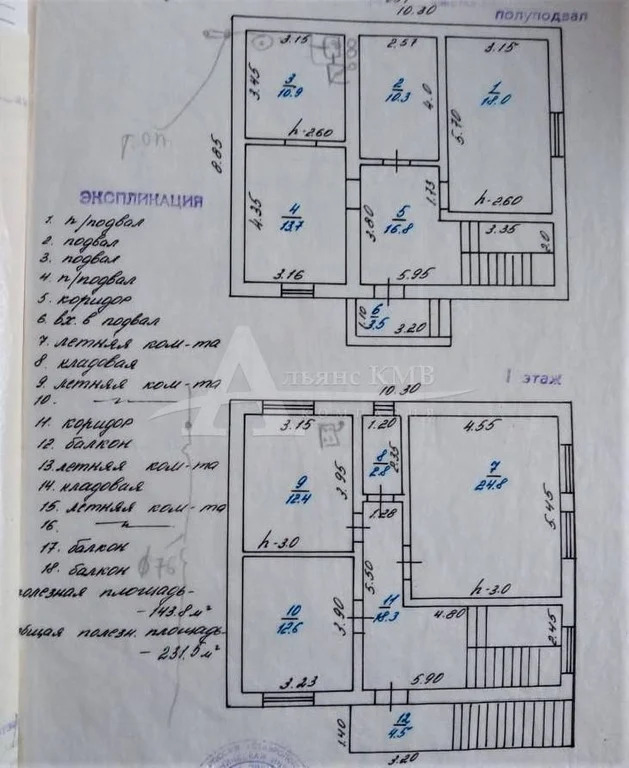 10.30
полуподвал
3.15
2.57
3.15
3.45
3
10.9
2
10.3
4.0
1
18.0
5.70
h-2.60
8.85
топ.
4.35
4
13.7
3.80
5
16.8
1.73
h-2.60
3.35
2.0
3.16
5.95
1.10
6
3.5
3.20
ЭКСПЛИКАЦИЯ
1. п/подвал
2. подвал
3. подвал
4. п/подвал
5. коридор
6. вх. в подвал
7. летняя ком-та
8. кладовая
9. летняя ком-та
10. —"—
11. коридор
12. балкон
13. летняя ком-та
14. кладовая
15. летняя ком-та
16. —"—
17. балкон
18. балкон
ф76
полезная площадь-
- 143.8 м²
общая полезн. площадь-
- 231.5 м²
Альянс КМВ
I этаж
10.30
3.15
1.20
4.55
9
12.4
3.95
8
2.8
2.35
7
24.8
5.45
1.28
h-3.0
5.50
h-3.0
10
12.6
3.90
11
18.3
4.80
2.45
3.23
5.90
1.40
12
4.5
3.20